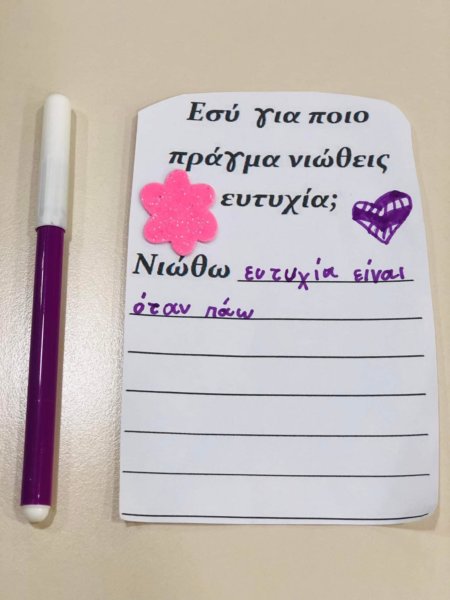 Εσύ για ποιο
πράγμα νιώθεις
ευτυχία;
Νιώθω ευτυχία είναι
όταν πάω